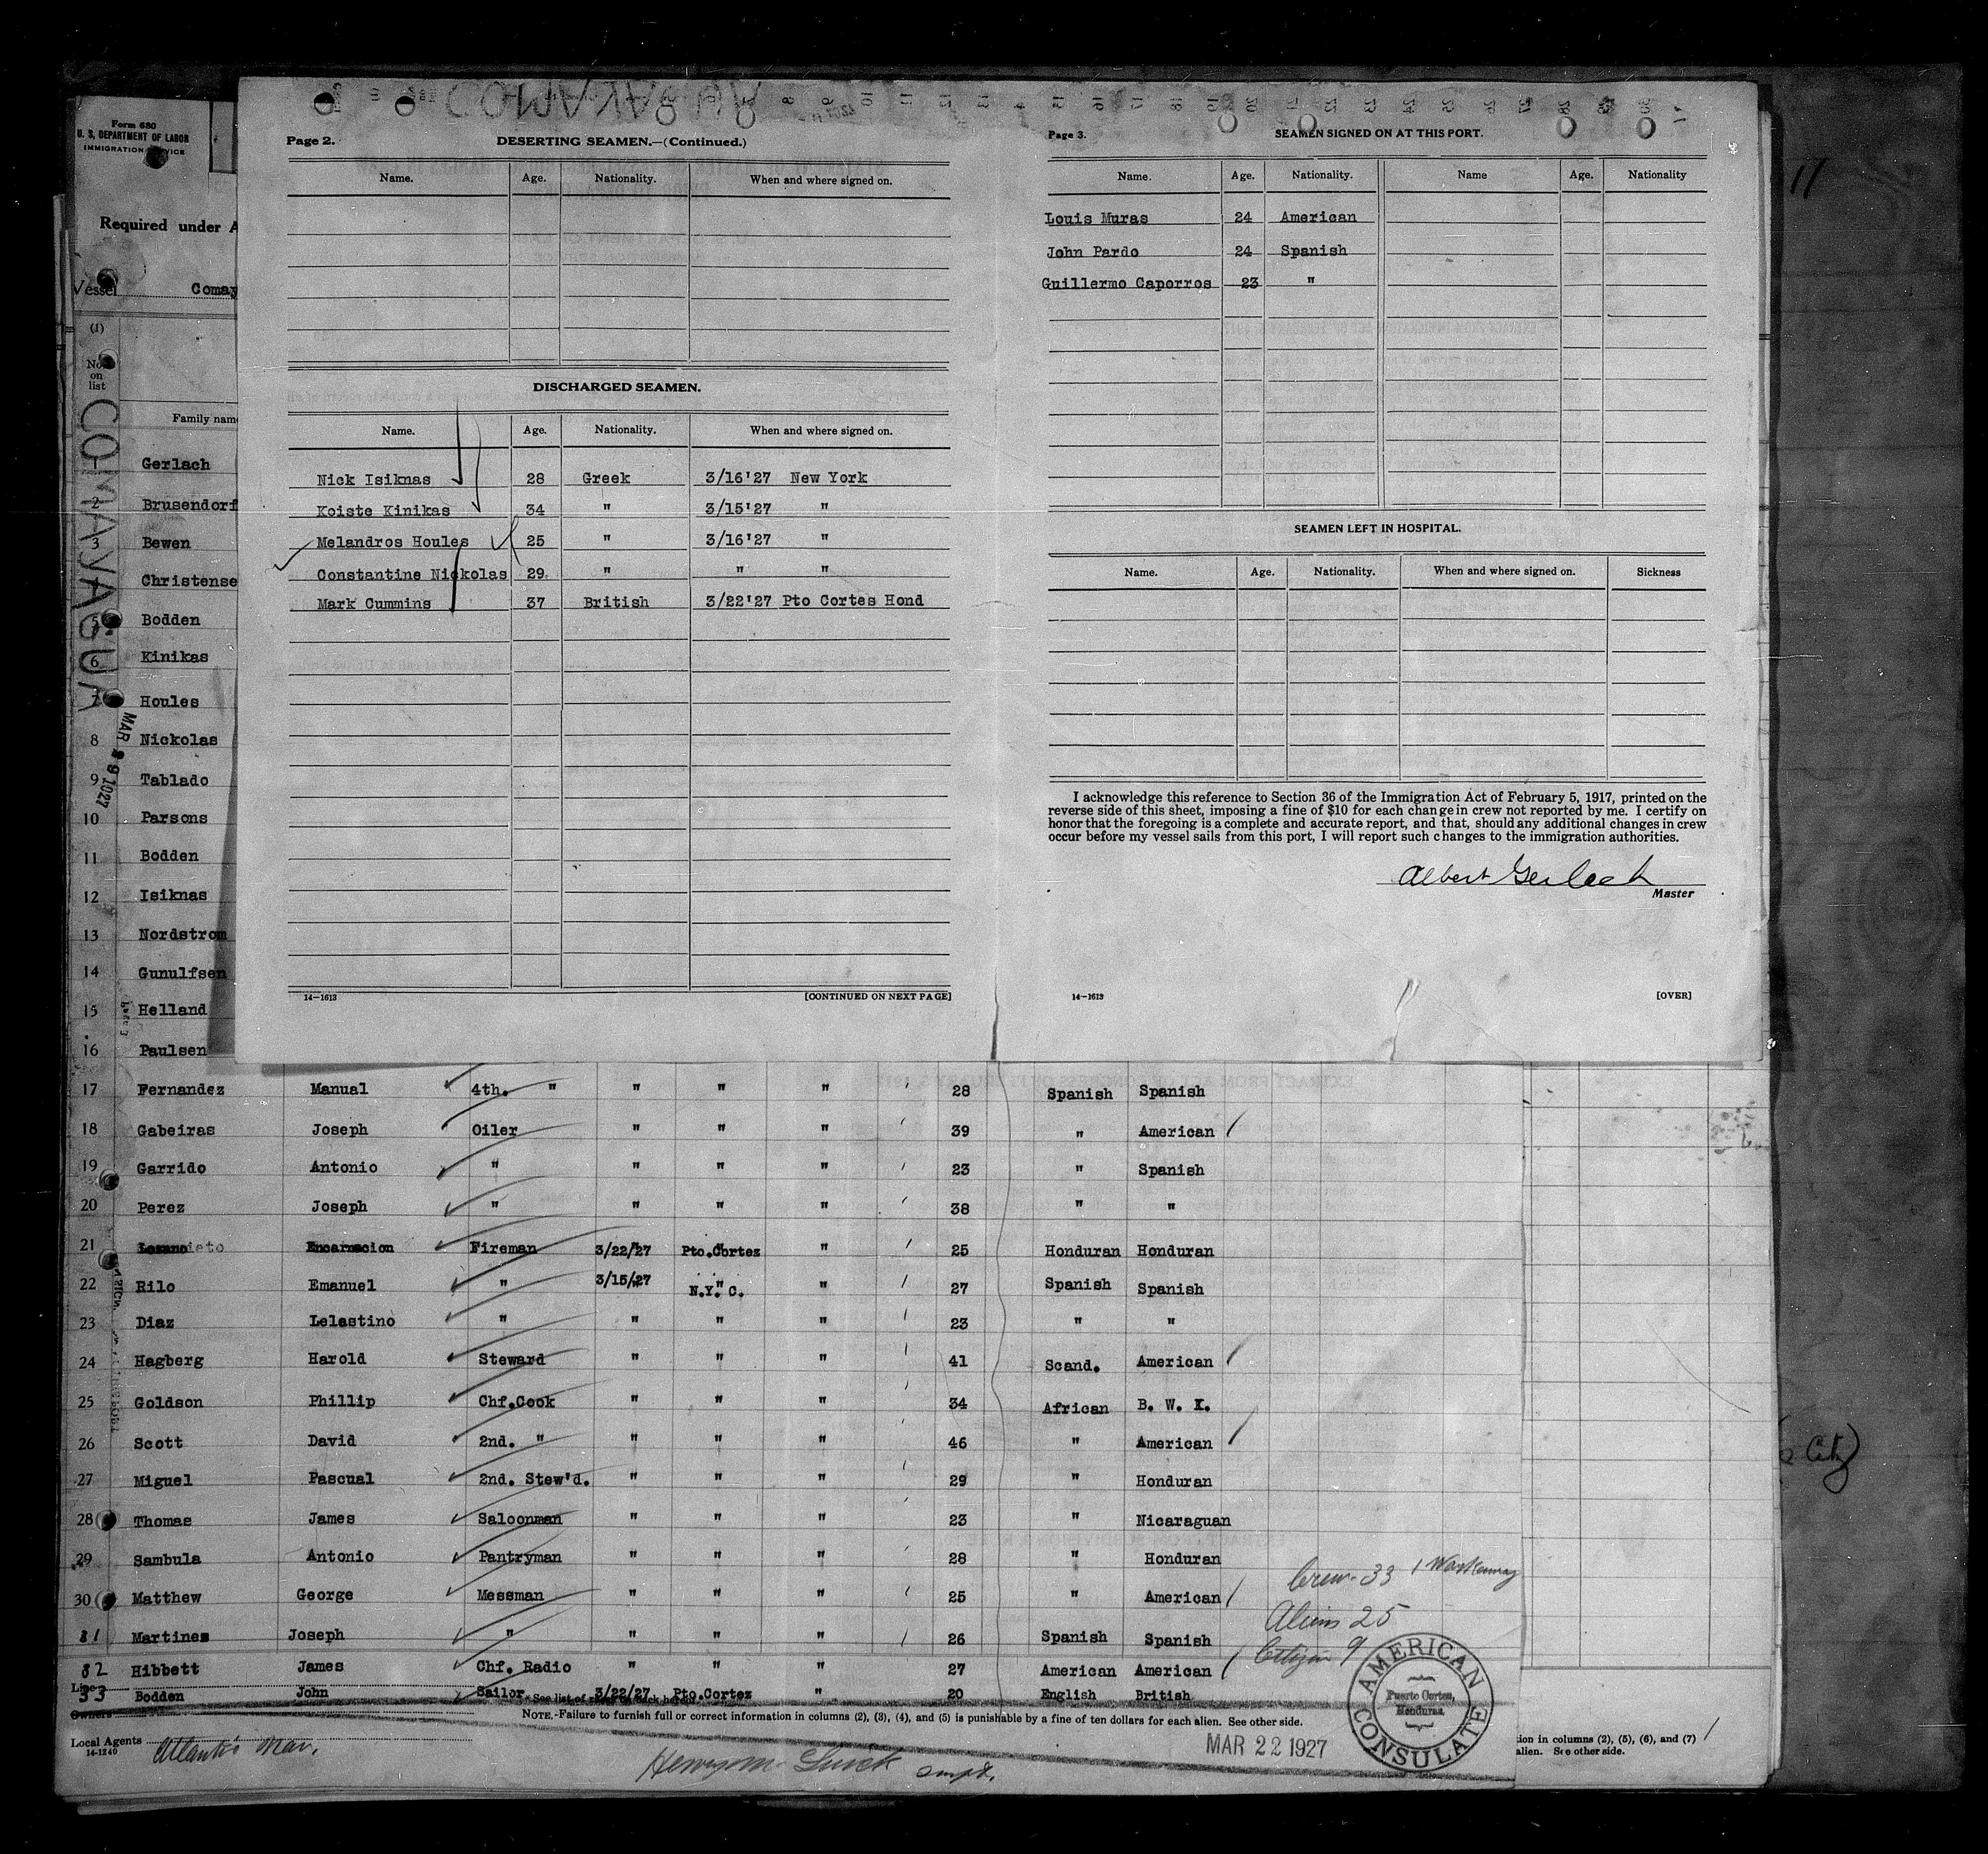 COMAYAGUA
Page 2. DESERTING SEAMEN.—(Continued.)
Name. Age. Nationality. When and where signed on.
DISCHARGED SEAMEN.
Name. Age. Nationality. When and where signed on.
Nick Isiknas 28 Greek 3/16'27 New York
Koiste Kinikas 34 " 3/15'27 "
Melandros Houles 25 " 3/16'27 "
Constantine Nickolas 29 " " "
Mark Cummins 37 British 3/22'27 Pto Cortes Hond
14—1613 [CONTINUED ON NEXT PAGE]
Page 3. SEAMEN SIGNED ON AT THIS PORT.
Name. Age. Nationality. Name Age. Nationality
Louis Muras 24 American
John Pardo 24 Spanish
Guillermo Caporros 23 "
SEAMEN LEFT IN HOSPITAL.
Name. Age. Nationality. When and where signed on. Sickness
I acknowledge this reference to Section 36 of the Immigration Act of February 5, 1917, printed on the
reverse side of this sheet, imposing a fine of $10 for each change in crew not reported by me. I certify on
honor that the foregoing is a complete and accurate report, and that, should any additional changes in crew
occur before my vessel sails from this port, I will report such changes to the immigration authorities.
Albert Gerlach
Master
14—1613 [OVER]
Form 680
U. S. DEPARTMENT OF LABOR
IMMIGRATION SERVICE
Required under A
Vessel Comay
(1)
No. on list
Family name
COMAYAGUA
MAR 29 1927
Gerlach
2 Brusendorf
3 Bewen
Christense
5 Bodden
6 Kinikas
7 Houles
8 Nickolas
9 Tablado
10 Parsons
11 Bodden
12 Isiknas
13 Nordstrom
14 Gunulfsen
15 Helland
16 Paulsen
17 Fernandez Manual 4th. " " " " 28 Spanish Spanish
18 Gabeiras Joseph Oiler " " " 39 " American
19 Garrido Antonio " " " " 23 " Spanish
20 Perez Joseph " " " " 38 " "
21 Encarnacion Fireman 3/22/27 Pto.Cortez " 25 Honduran Honduran
22 Rilo Emanuel " 3/15/27 N.Y. C. " 27 Spanish Spanish
23 Diaz Lelestino " " " " 23 " "
24 Hagberg Harold Steward " " " 41 Scand. American
25 Goldson Phillip Chf.Cook " " " 34 African B. W. I.
26 Scott David 2nd. " " " " 46 " American
27 Miguel Pascual 2nd. Stew'd. " " " 29 " Honduran
28 Thomas James Saloonman " " " 23 " Nicaraguan
29 Sambula Antonio Pantryman " " " 28 " Honduran
30 Matthew George Messman " " " 25 " American
31 Martines Joseph " " " " 26 Spanish Spanish
32 Hibbett James Chf. Radio " " " 27 American American
33 Bodden John Sailor 3/22/27 Pto.Cortez " 20 English British
Crew-33 1 Workaway
Aliens 25
Citizen 9
Line
Owners
See list of
NOTE.-Failure to furnish full or correct information in columns (2), (3), (4), and (5) is punishable by a fine of ten dollars for each alien. See other side.
Local Agents Atlantic Nav.
14-1240
MAR 22 1927
AMERICAN CONSULATE
Puerto Cortes, Honduras.
tion in columns (2), (5), (6), and (7)
alien. See other side.
17